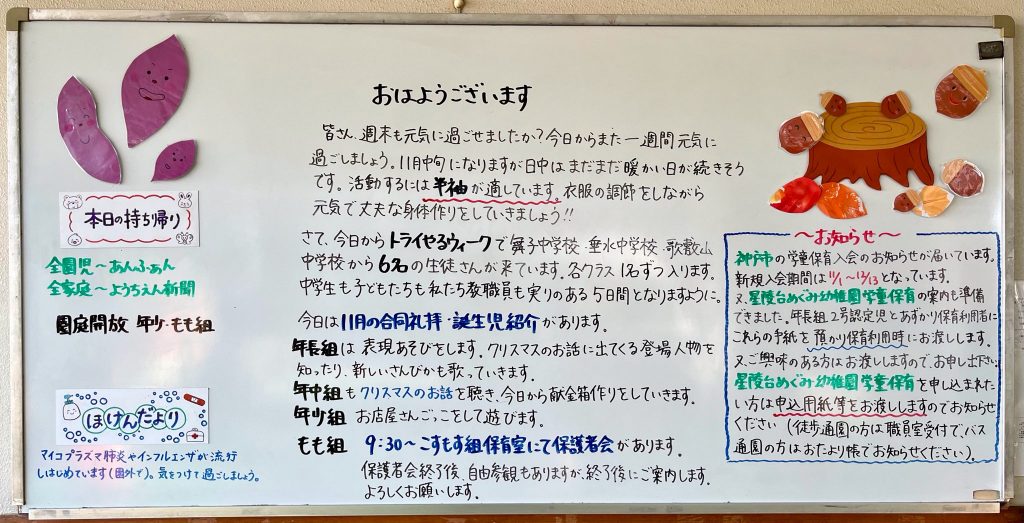 おはようございます
皆さん、週末も元気に過ごせましたか?今日からまた一週間元気に
過ごしましょう。11月中旬になりますが日中はまだまだ暖かい日が続きそう
です。活動するには半袖が適しています。衣服の調節をしながら
元気で丈夫な身体作りをしていきましょう!!
さて、今日からトライやるウィークで舞子中学校・垂水中学校・歌敷山
中学校から6名の生徒さんが来ています。各クラス1名ずつ入ります。
中学生も子どもたちも私たち教職員も実りのある5日間となりますように。
今日は11月の合同礼拝・誕生児紹介があります。
年長組は表現あそびをします。クリスマスのお話に出てくる登場人物を
知ったり、新しいさんびかも歌っていきます。
年中組もクリスマスのお話を聴き、今日から献金箱作りをしていきます。
年少組 お店屋さんごっこをして遊びます。
もも組 9:30～こすもす組保育室にて保護者会があります。
保護者会終了後、自由参観もありますが、終了後にご案内します。
よろしくお願いします。
本日の持ち帰り
全園児～あんふぁん
全家庭～ようちえん新聞
園庭開放 年少・もも組
ほけんだより
マイコプラズマ肺炎やインフルエンザが流行
しはじめています(園外で)。気をつけて過ごしましょう。
～お知らせ～
神戸市の学童保育入会のお知らせが届いています。
新規入会期間は11/1～12/13となっています。
又、星陵台めぐみ幼稚園学童保育の案内も準備
できました。年長組2号認定児とあずかり保育利用者に
これらの手紙を預かり保育利用時にお渡しします。
又ご興味のある方はお渡ししますのでお申し出下さい。
星陵台めぐみ幼稚園学童保育を申し込まれた
い方は申込用紙等をお渡ししますのでお知らせ
ください(徒歩通園の方は職員室受付で、バス
通園の方はおたより帳でお知らせください)。